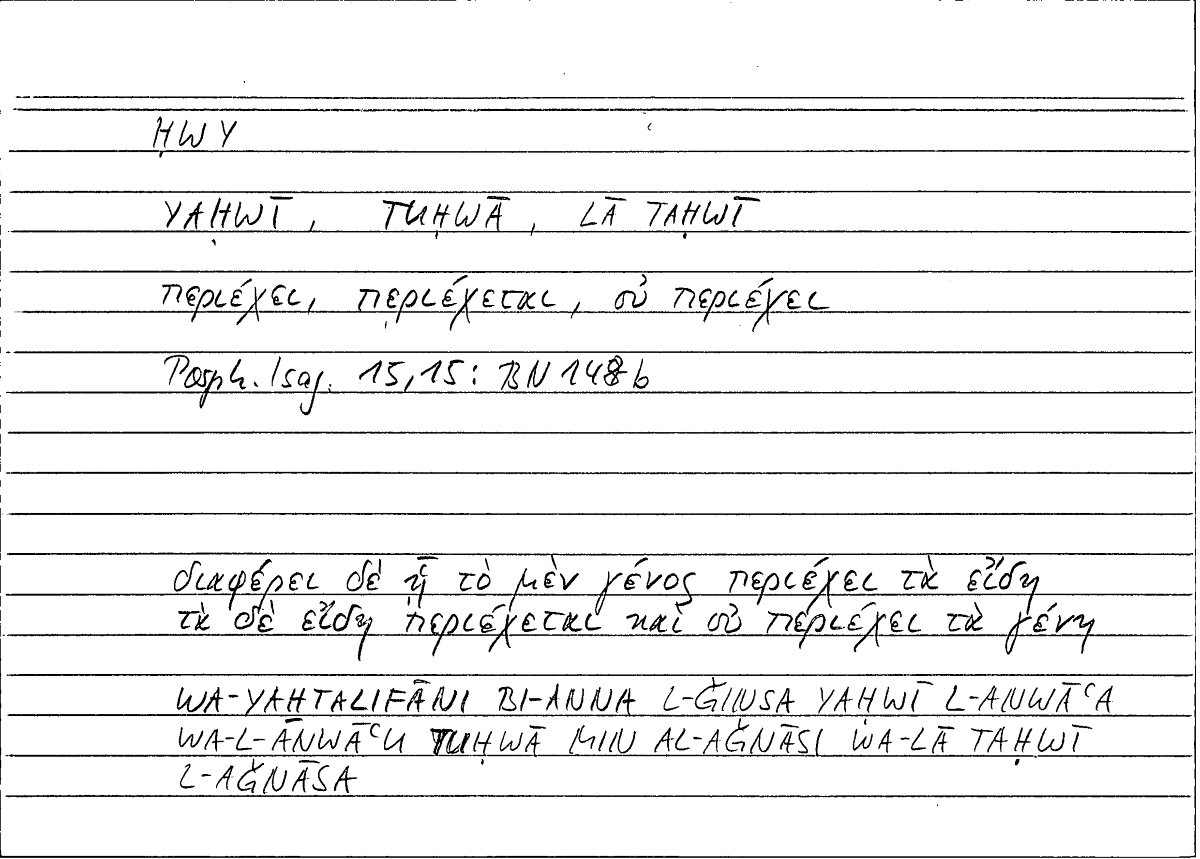 ḤWY
YAḤWĪ, TUḤWĀ, LĀ TAḤWĪ
περιέχει, περιέχεται, οὐ περιέχει
Porph. Isag. 15,15: BN 148b
διαφέρει δὲ ᾗ τὸ μὲν γένος περιέχει τὰ εἴδη
τὰ δὲ εἴδη περιέχεται καὶ οὐ περιέχει τὰ γένη
WA-YAHTALIFĀNI BI-ANNA L-ǦINSA YAḤWĪ L-ANWĀʿA
WA-L-ĀNWĀʿU TUḤWĀ MIN AL-AǦNĀSI WA-LĀ TAḤWĪ
L-AǦNĀSA